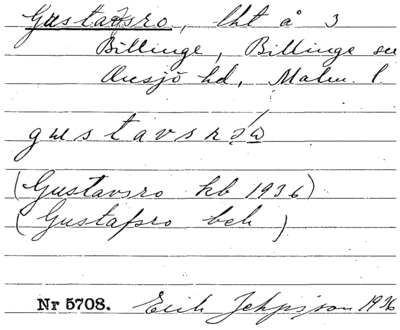 Gustavsro, lht å 3
Billinge, Billinge sn
Onsjö hd, Malm. l.
gustavsrów
(Gustavsro kb 1936)
(Gustafsro bch)
Nr 5708. Erik 1936